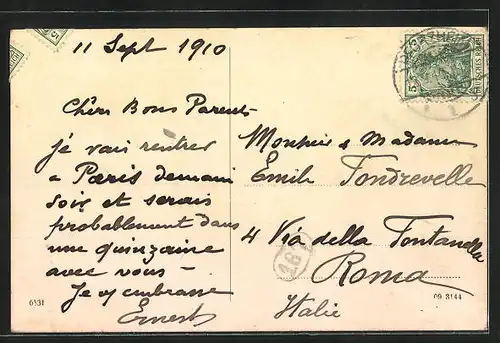 11 Sept 1910
Chers Bons Parents
Je vais rentrer
a Paris demain
soir et serais
probablement dans
une quinzaine
avec vous —
Je v embrasse
Ernest
Monsieur & Madame
Emile Fondrevelle
4 Via della Fontanella
Roma
Italie
DEUTSCHES REICH
5
18
6131
09. 3144